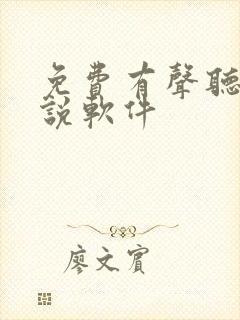 免費有聲聽
說軟件
廖文賓